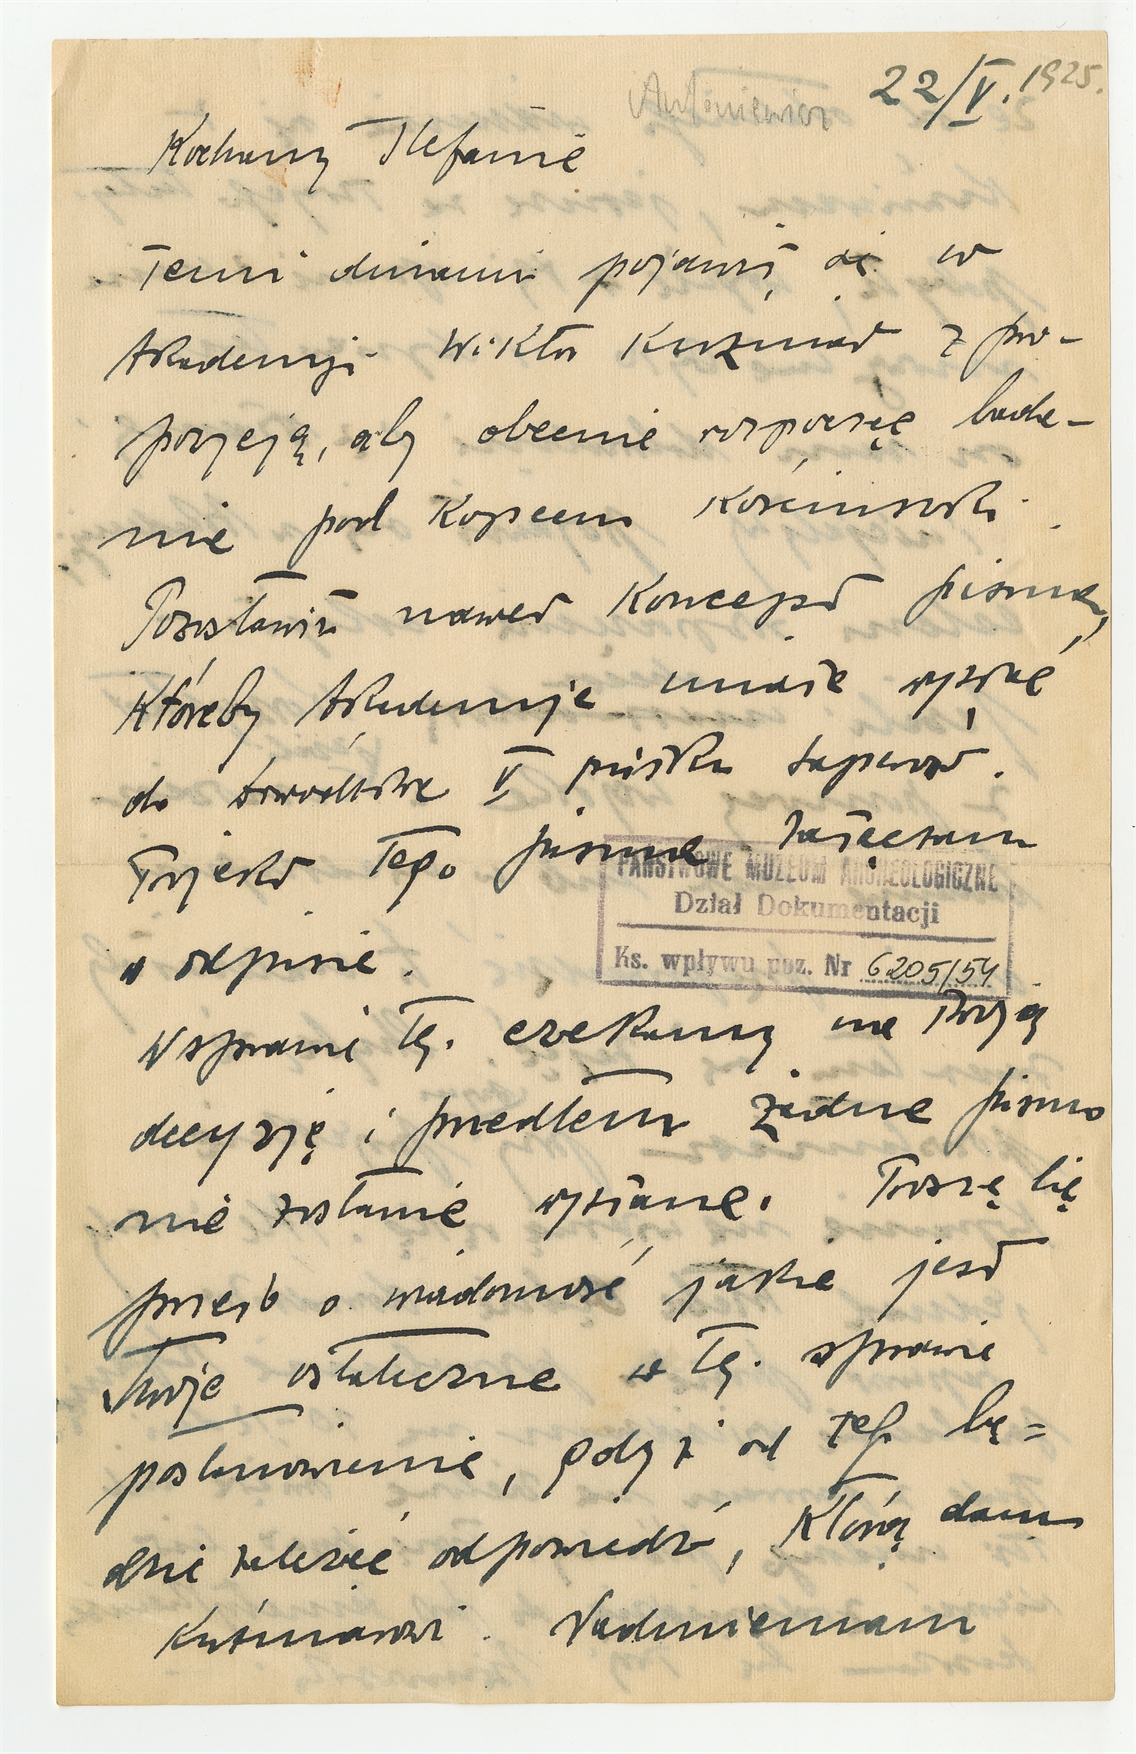 Antoniewicz
22/V. 1925.
Kochany Stefanie
Temi dniami pojawił się w
Akademji Wiktor Kuźniar z pro-
pozycją, aby obecnie rozpocząć bada-
nie pod Kopcem Kościuszki.
Pozostawił nawet koncept pisma,
któreby Akademja miała wysłać
do dowództwa V pułku saperów.
Projekt tego pisma załączam
w odpisie.
PAŃSTWOWE MUZEUM ARCHEOLOGICZNE
Dział Dokumentacji
Ks. wpływu poz. Nr 6205/54
W sprawie tej czekamy na Twoją
decyzję i przedtem żadne pismo
nie zostanie wysłane. Proszę Cię
przeto o wiadomość jakie jest
Twoje ostateczne w tej sprawie
postanowienie, gdyż od tego bę=
dzie zależeć odpowiedź, którą dam
Kuźniarowi. Nadmieniam